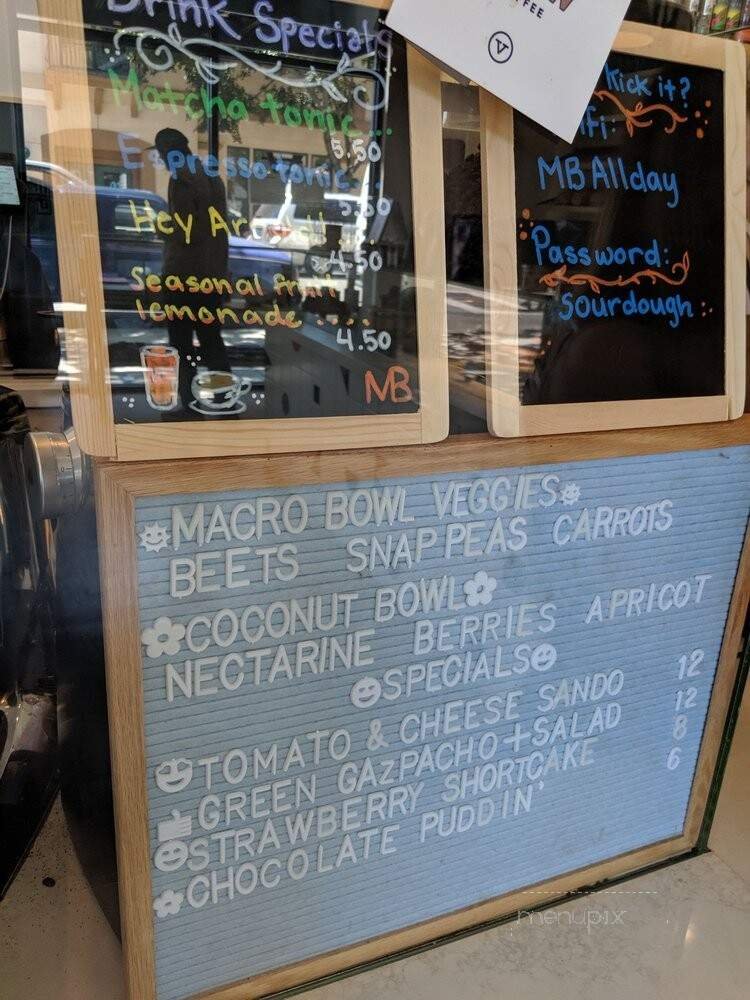 Drink Specials
Matcha tonic...
5.50
Espresso tonic..
5.50
Hey
4.50
Seasonal fruit
lemonade ....
4.50
MB
FEE
Kick it?
MB Allday
Password:
Sourdough
MACRO BOWL VEGGIES
BEETS SNAP PEAS CARROTS
COCONUT BOWL
NECTARINE BERRIES APRICOT
SPECIALS
TOMATO & CHEESE SANDO 12
GREEN GAZPACHO + SALAD 12
STRAWBERRY SHORTCAKE 8
CHOCOLATE PUDDIN' 6
menupix